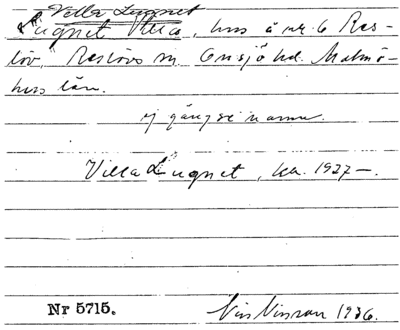 Villa Lugnet
Lugnet Villa, hus å nr. 6 Res-
löv, Reslövs sn. Onsjö hd. Malmö-
hus län.
ej gängse namn.
Villa Lugnet, ka. 1927-.
Nr 5715. 1936.